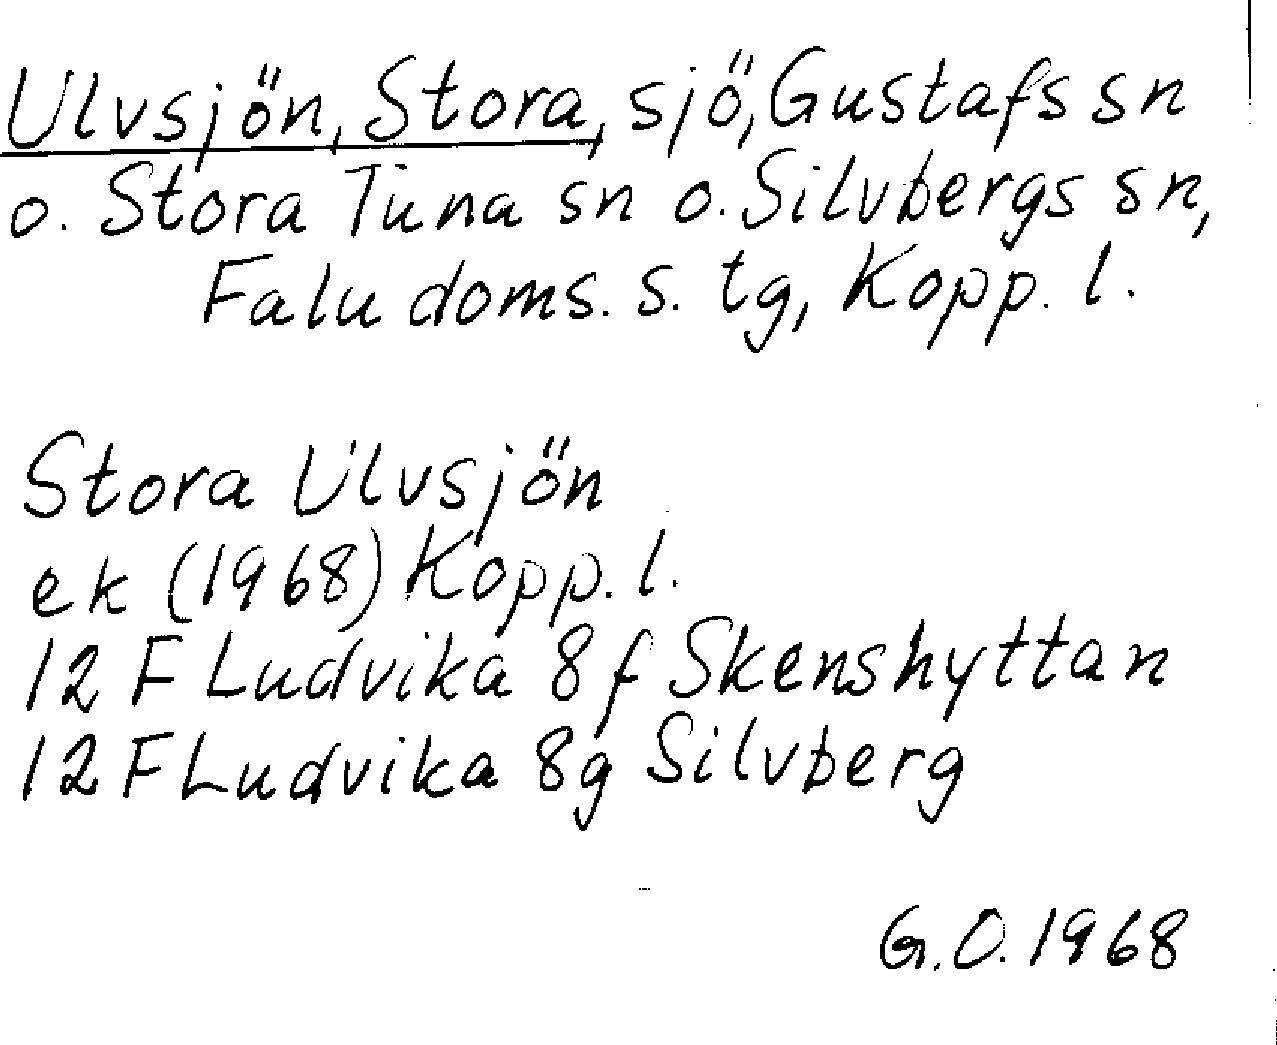 Ulvsjön, Stora, sjö, Gustafs sn
o. Stora Tuna sn o. Silvbergs sn,
Falu doms. s. tg, Kopp. l.
Stora Ulvsjön
ek (1968) Kopp. l.
12 F Ludvika 8f Skenshyttan
12 F Ludvika 8g Silvberg
G.O. 1968